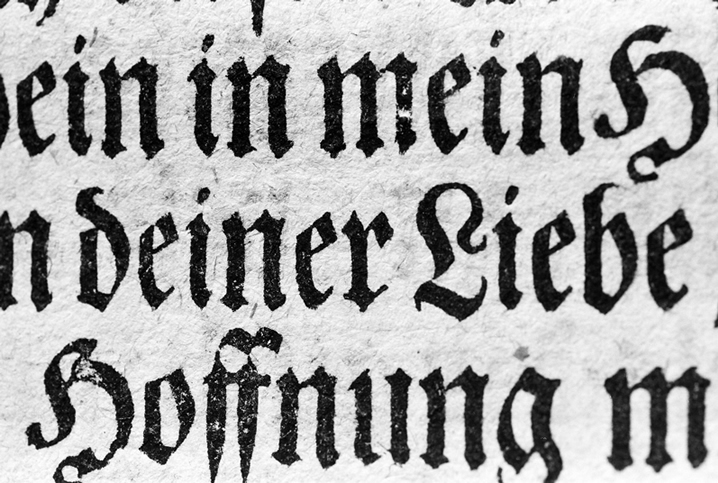 ein in mein H
n deiner Liebe
Hoffnung m